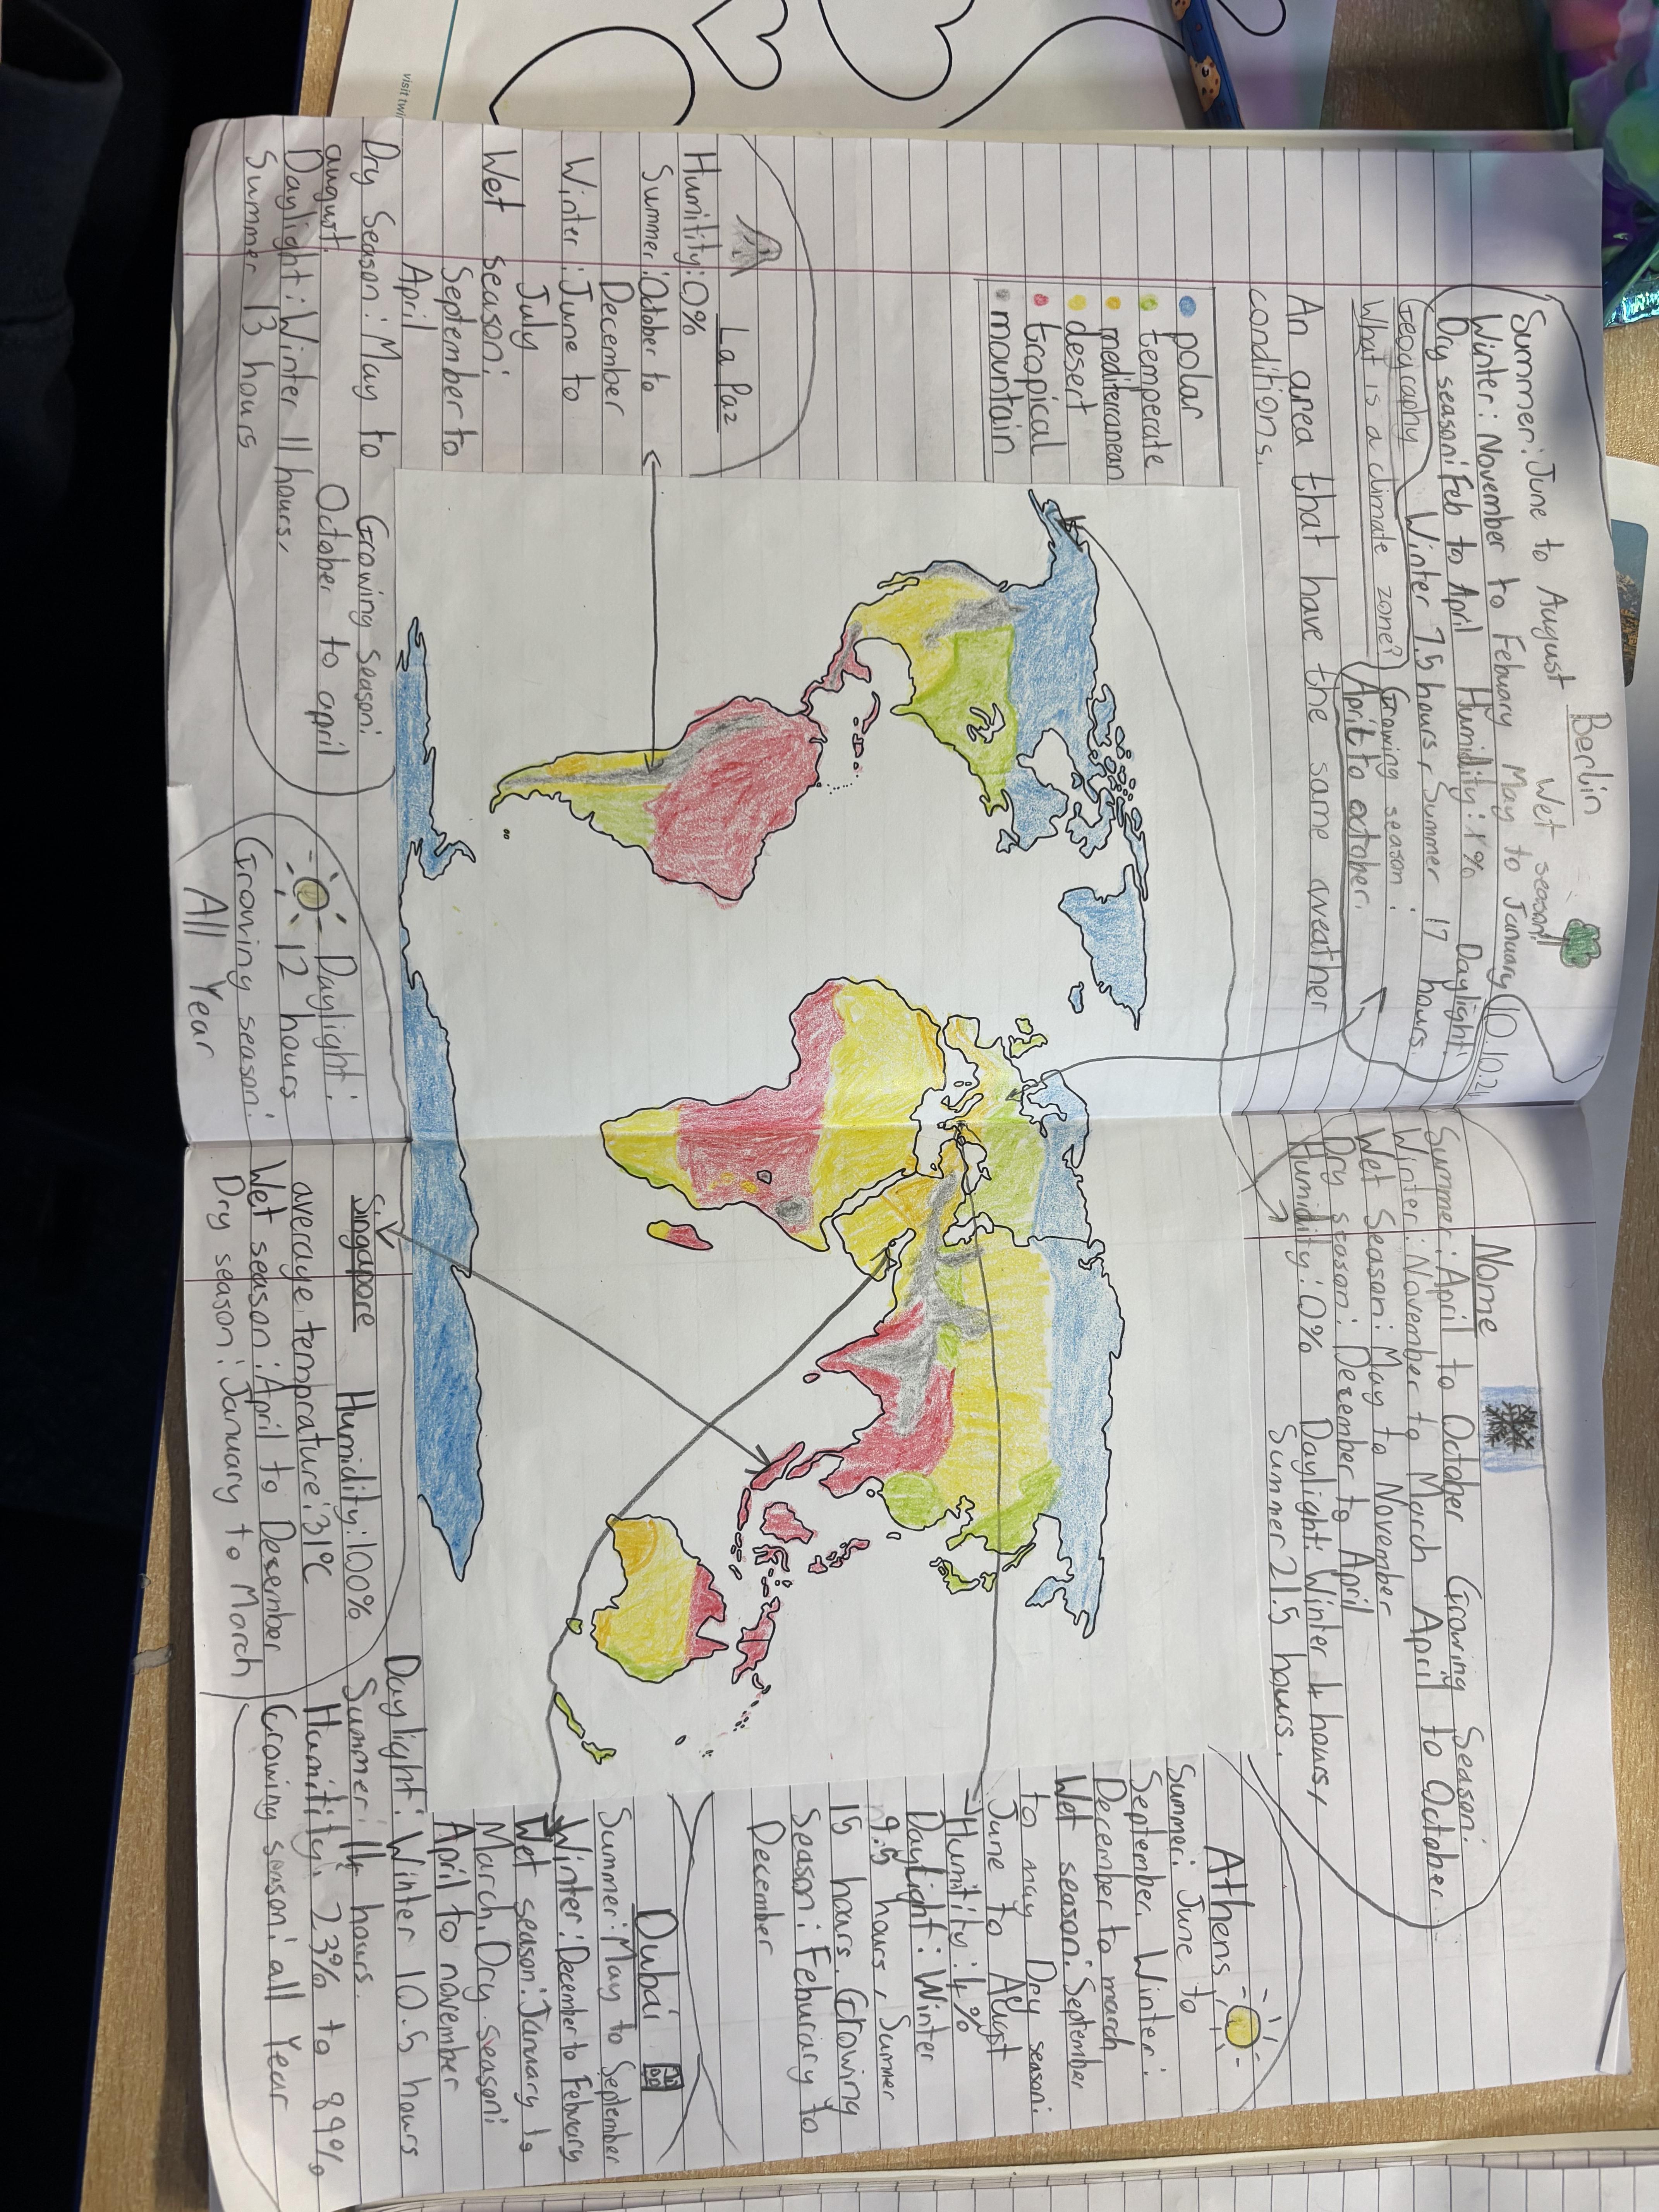 visit twi
Berlin
Summer: June to August Wet season:
Winter: November to Febuary May to January
Dry season: Feb to April Humidity: 1% Daylight:
Winter 7.5 hours, Summer 17 hours.
Growing season:
April to october.
10.10.24
Geography
What is a climate zone?
An area that have the same weather
conditions.
polar
temperate
mediterranean
desert
tropical
mountain
La Paz
Humitity: 0%
Summer: October to
December
Winter: June to
July
Wet season:
September to
April
Dry Season: May to
august.
Daylight: Winter 11 hours,
Summer 13 hours
Growing season:
October to april
Daylight:
12 hours
Growing season:
All Year
Singapore Humidity: 100%
average temprature: 31°C
Wet season: April to Desember
Dry season: January to March
Nome
Summer: April to October Growing Season:
Winter: November to March April to October
Wet Season: May to November
Dry season: December to April
Humidity: 0% Daylight: Winter 4 hours,
Summer 21.5 hours.
Athens
Summer: June to
September. Winter:
December to march
Wet season: September
to may Dry season:
June to August
Humitity: 4%
Daylight: Winter
9.5 hours, Summer
15 hours. Growing
Season: Feburary to
December
Dubai
Summer: May to September
Winter: December to Febuary
Wet season: January to
March. Dry season:
April to november
Daylight: Winter 10.5 hours
Summer: 14 hours.
Humitity: 23% to 89%
Growing season: all Year